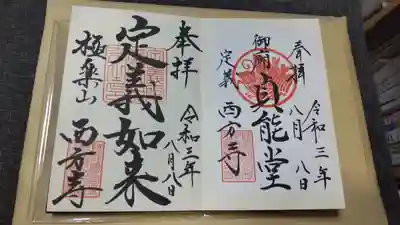 奉拝
令和三年
八月八日
御廟
貞能堂
定義
西方寺
奉拝
令和三年
八月八日
定義如来
極楽山
西方寺